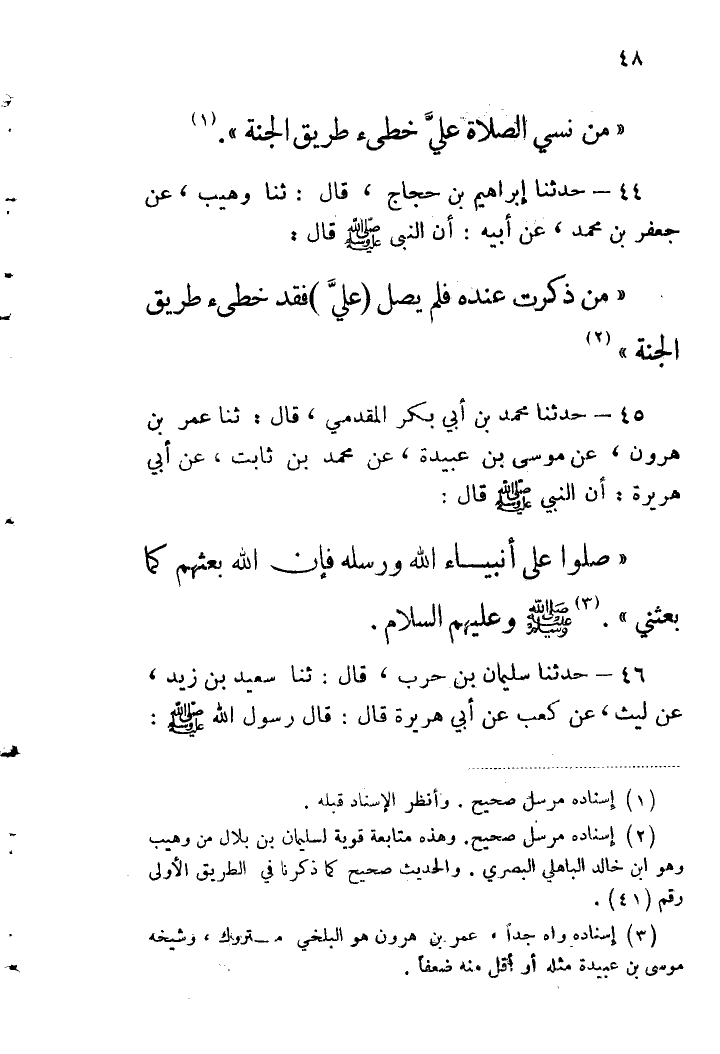 ٤٨
« من نسي الصلاة عليَّ خطىء طريق الجنة ».(١)
٤٤ – حدثنا إبراهيم بن حجاج ، قال : ثنا وهيب ، عن
جعفر بن محمد ، عن أبيه : أن النبي ﷺ قال :
« من ذكرت عنده فلم يصل (عليَّ )فقد خطىء طريق
الجنة » (٢)
٤٥ – حدثنا محمد بن أبي بكر المقدمي ، قال : ثنا عمر بن
هرون ، عن موسى بن عبيدة ، عن محمد بن ثابت ، عن أبي
هريرة : أن النبي ﷺ قال :
« صلوا على أنبيـاء الله ورسله فإن الله بعثهم كما
بعثني » .(٣) ﷺ وعليهم السلام .
٤٦ – حدثنا سليمان بن حرب ، قال : ثنا سعيد بن زيد ،
عن ليث ، عن كعب عن أبي هريرة قال : قال رسول الله ﷺ :
(١) إسناده مرسل صحيح . وأنظر الإسناد قبله .
(٢) إسناده مرسل صحيح. وهذه متابعة قوية لسليمان بن بلال من وهيب
وهو ابن خالد الباهلي البصري . والحديث صحيح كما ذكرنا في الطريق الأولى
رقم (٤١) .
(٣) إسناده واه جداً ، عمر بن هرون هو البلخي متروك ، وشيخه
موسى بن عبيدة مثله أو أقل منه ضعفاً .